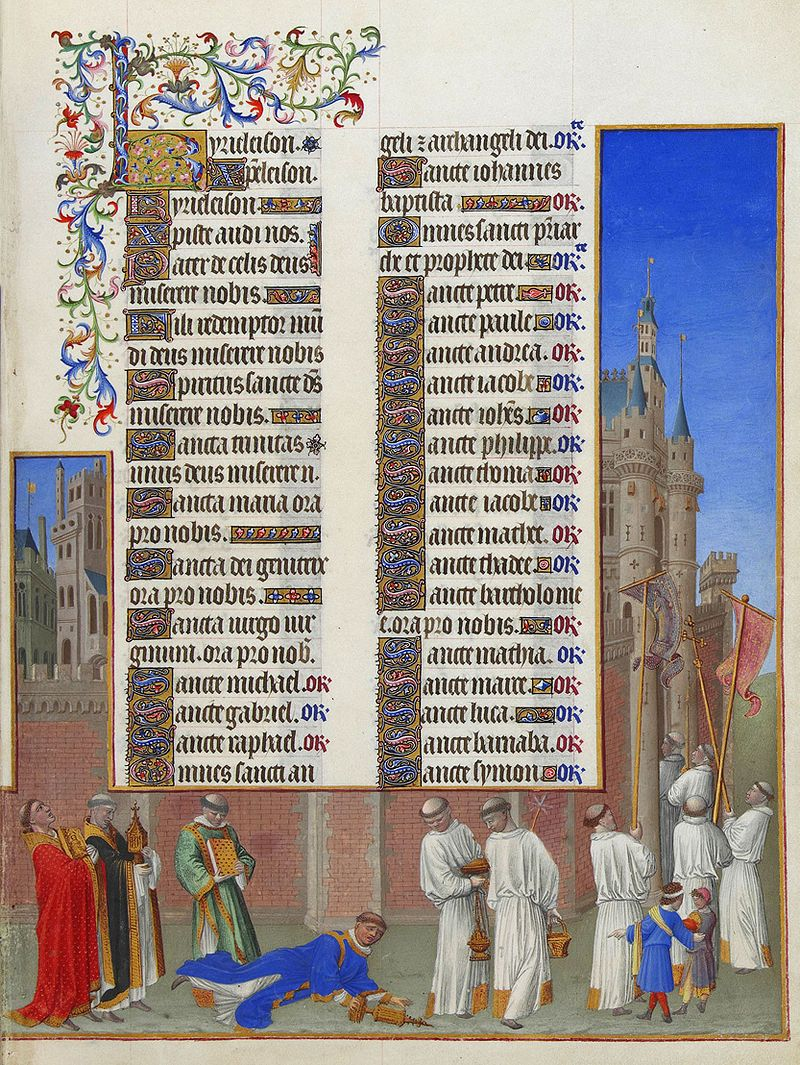 Kyrieleison.
Xp̄eleison.
Kyrieleison.
Xpiste audi nos.
Pater de celis deus
miserere nobis.
Fili redemptor mū
di deus miserere nobis
Spiritus sancte d̄s
miserere nobis.
Sancta trinitas
unus deus miserere n.
Sancta maria ora
pro nobis.
Sancta dei genitrix
ora pro nobis.
Sancta uirgo uir
ginum. ora pro nob̄.
Sancte michael. OR
Sancte gabriel. OR
Sancte raphael. OR
Omnes sancti an
geli ⁊ archangeli dei. ORte.
Sancte iohannes
baptista OR.
Omnes sancti p̄riar
che et prophete dei ORte.
Sancte petre OR.
Sancte paule OR.
Sancte andrea. OR.
Sancte iacobe OR.
Sancte ioh̄es OR.
Sancte philippe. OR
Sancte thoma OR
Sancte iacobe OR
Sancte mathee. OR
Sancte thadee OR
Sancte bartholome
e. ora pro nobis. OR
Sancte mathia. OR
Sancte marce OR
Sancte luca. OR
Sancte barnaba. OR
Sancte symon OR